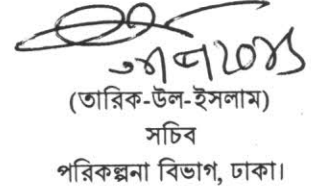 (তারিক-উল-ইসলাম)
সচিব
পরিকল্পনা বিভাগ, ঢাকা।